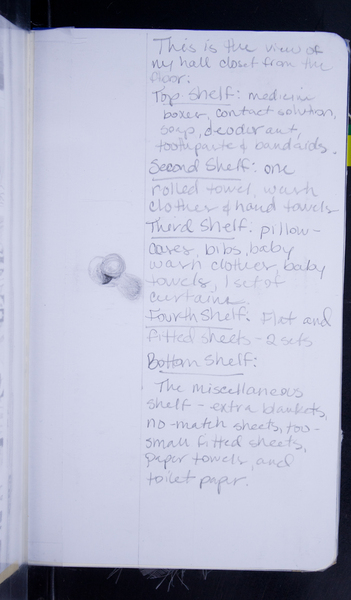 This is the view of
my hall closet from the
floor:
Top Shelf: medicine
boxes, contact solution,
soap, deodorant,
toothpaste & bandaids.
Second Shelf: one
rolled towel, wash
clothes & hand towels
Third Shelf: pillow-
cases, bibs, baby
wash clothes, baby
towels, 1 set of
curtains.
Fourth Shelf: Flat and
fitted sheets - 2 sets
Bottom Shelf:
The miscellaneous
shelf - extra blankets,
no-match sheets, too-
small fitted sheets,
paper towels, and
toilet paper.